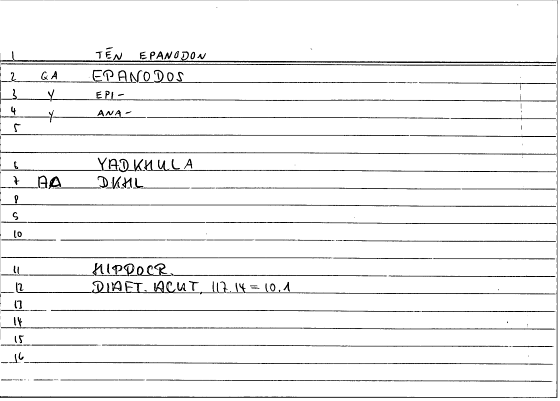 1 TĒN EPANODON
2 GA EPANODOS
3 Y EPI-
4 Y ANA-
5
6 YADKHULA
7 AA DKHL
8
9
10
11 HIPPOCR.
12 DIAET. ACUT. 117.14 = 10.1
13
14
15
16